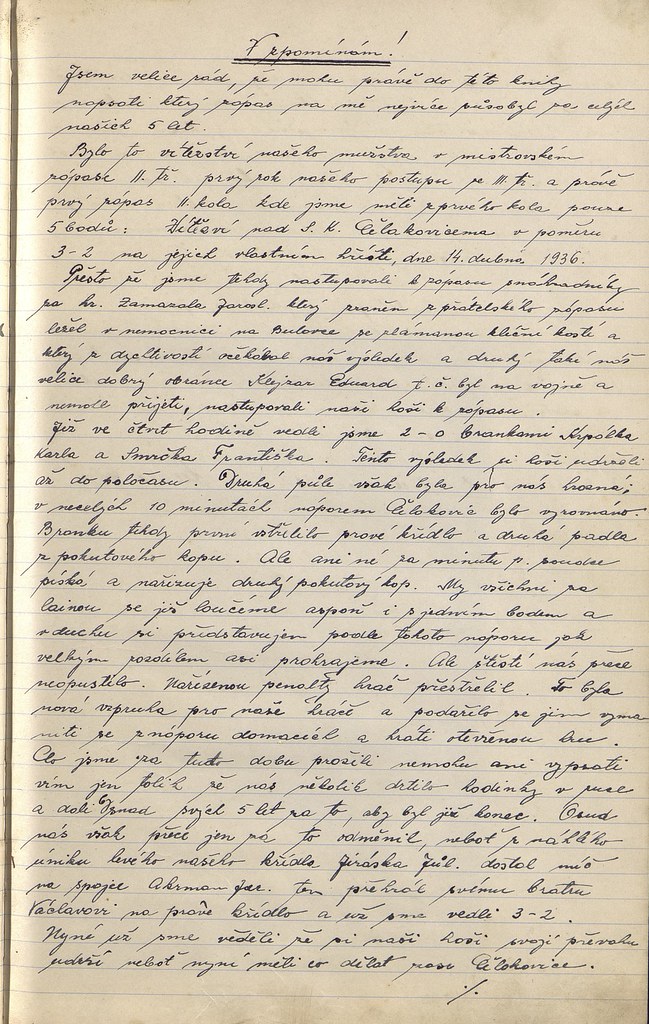 Vzpomínám!
Jsem velice rád, že mohu právě do této knihy
napsati který zápas na mě nejvíce působyl za celých
našich 5 let.
Bylo to vítězství našeho mužstva v mistrovském
zápase II. tř. prvý rok našeho postupu ze III. tř. a právě
prvý zápas II. kola kde jsme měli z prvého kola pouze
5 bodů: Vítězví nad S. K. Čelakovicema v poměru
3-2 na jejich vlastním hřišti, dne 14. dubna 1936.
Přesto že jsme tehdy nastupovali k zápasu s náhradníky
za hr. Zamazala Jarosl. který zraněn z přátelského zápasu
ležel v nemocnici na Bulovce se zlámanou klíční kostí a
který z dychtivostí očekával náš výsledek a druhý také náš
velice dobrý obránce Klejzar Eduard t. č. byl na vojně a
nemohl přijeti, nastupovali naši hoši k zápasu.
Již ve čtvrt hodině vedli jsme 2-0 brankami Krpálka
Karla a Smrčka Františka. Tento výsledek si hoši udrželi
až do poločasu. Druhá půle však byla pro nás hrozná;
v necelých 10 minutách náporem Čelakovic bylo vyrovnáno.
Branku tehdy první vstřelilo pravé křídlo a druhá padla
z pokutového kopu. Ale ani né za minutu p. soudce
píská a nařizuje druhý pokutový kop. My všichni za
lainou se již loučéme aspoň i s jedním bodem a
v duchu si představujem podle tohoto náporu jak
velkým rozdílem asi prohrajeme. Ale štěstí nás přece
neopustilo. Nařízenou penaltu hráč přestřelil. To byla
nová vzpruha pro naše hráče a podařilo se jim vyma
niti se z náporu domacích a hráti otevřenou hru.
Co jsme za tuto dobu prožili nemohu ani vypsati
vím jen tolik že nás několik drtilo hodinky v ruce
a dali by snad svých 5 let za to, aby byl již konec. Osud
nás však přece jen za to odměnil, neboť z náhlého
úniku levého našeho křídla Jiráska Júl. dostal míč
na spojce Ahrman Jar. ten přehrál svému bratru
Václavovi na pravé křídlo a už sme vedli 3-2.
Nyné už sme věděli že si naši hoši svojí převahu
udrží neboť nyní měli co dělat zase Čelakovice.
./.